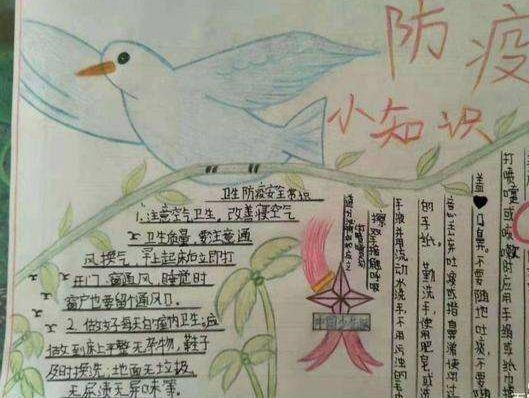 防疫
小知识
卫生防疫安全常识
1.注意空气卫生，改善寝空气
卫生质量，要注意通
风换气，早上起床后立即打
开门、窗通风，睡觉时
窗户也要留个通风口。
2.做好每天的室内卫生：应
做到床上平整无杂物，鞋子
及时换洗；地面无垃圾
无尿渍无异味等。
打喷嚏或咳嗽时应用手绢或纸巾掩
盖♥口鼻，不要随地吐痰，不要随
意丢弃吐痰或揩鼻涕使用过
的手纸。勤洗手，使用肥皂或洗
手液并用流动水洗手，不用污浊的毛巾
擦双手接触呼吸